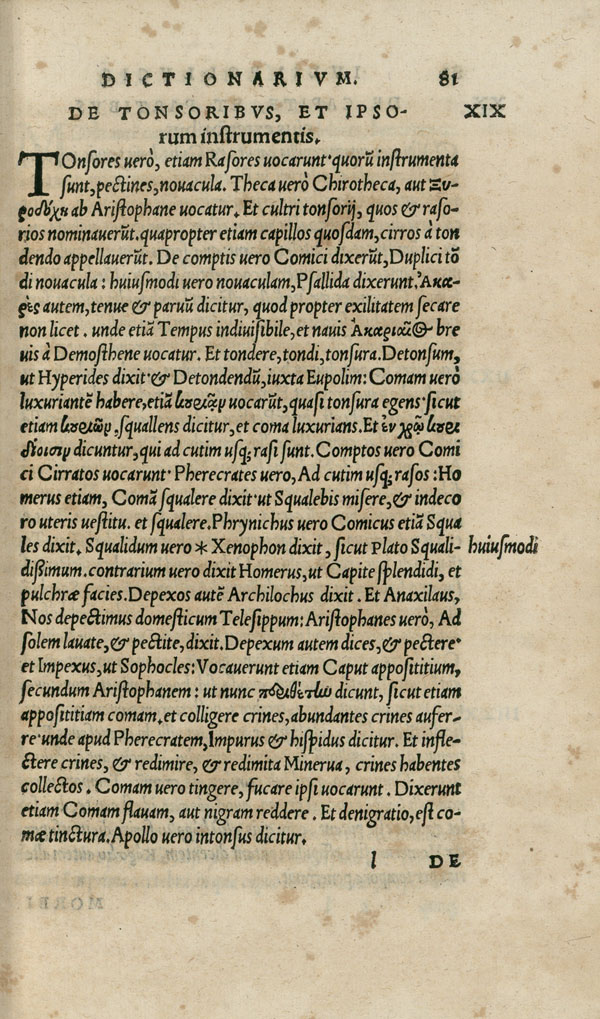 DICTIONARIVM. 81
DE TONSORIBVS, ET IPSO- XIX
rum instrumentis.
TOnsores uerò, etiam Rasores uocarunt·quorū instrumenta
sunt, pectines, nouacula. Theca uerò Chirotheca, aut Ξυ-
ροδόχη ab Aristophane uocatur. Et cultri tonsorij, quos & raso-
rios nominauerūt. quapropter etiam capillos quosdam, cirros à ton
dendo appellauerūt. De comptis uero Comici dixerūt, Duplici tō
di nouacula: huiusmodi uero nouaculam, Psallida dixerunt. Ἀκα-
ρὲς autem, tenue & paruū dicitur, quod propter exilitatem secare
non licet. unde etiā Tempus indiuisibile, et nauis Ἀκαριαῖος bre
uis à Demosthene uocatur. Et tondere, tondi, tonsura. Detonsum,
ut Hyperides dixit·& Detondendū, iuxta Eupolim: Comam uerò
luxuriantē habere, etiā uocarūt, quasi tonsura egens·sicut
etiam squallens dicitur, et coma luxurians. Et ἐν χρῷ
dicuntur, qui ad cutim usq; rasi sunt. Comptos uero Comi
ci Cirratos uocarunt· Pherecrates uero, Ad cutim usq; rasos: Ho
merus etiam, Comā squalere dixit·ut Squalebis misere, & indeco
ro uteris uestitu. et squalere. Phrynichus uero Comicus etiā Squa
les dixit. Squalidum uero * Xenophon dixit, sicut Plato Squali- huiusmodi
dißimum. contrarium uero dixit Homerus, ut Capite splendidi, et
pulchræ facies. Depexos autē Archilochus dixit. Et Anaxilaus,
Nos depectimus domesticum Telesippum: Aristophanes uerò, Ad
solem lauate, & pectite, dixit. Depexum autem dices, & pectere·
et Impexus, ut Sophocles: Vocauerunt etiam Caput appositium,
secundum Aristophanem: ut nunc dicunt, sicut etiam
appositiam comam. et colligere crines, abundantes crines aufer-
re·unde apud Pherecratem, Impurus & hispidus dicitur. Et infle-
ctere crines, & redimire, & redimita Minerua, crines habentes
collectos. Comam uero tingere, fucare ipsi uocarunt. Dixerunt
etiam Comam flauam, aut nigram reddere. Et denigratio, est co-
mæ tinctura. Apollo uero intonsus dicitur.
l DE